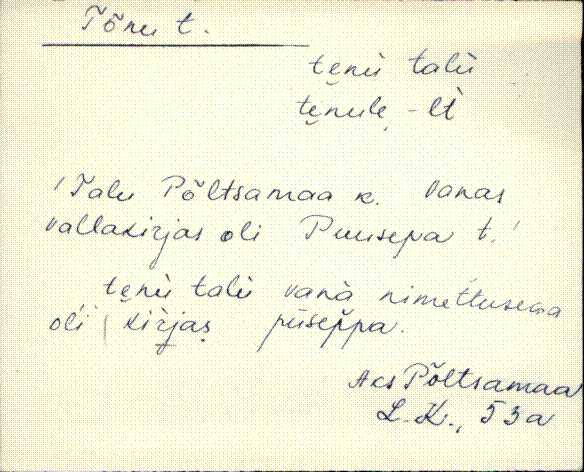 Tõnu t.
te̮nù talù
te̮nule̮ -lt
'Talu Põltsamaa k. Vanas
vallakirjas oli Puusepa t.'
te̮nù talù vanà nimettusega
oli kirjas̨ pùsep̆pa.
Aks Põltsamaa
L. K., 53a